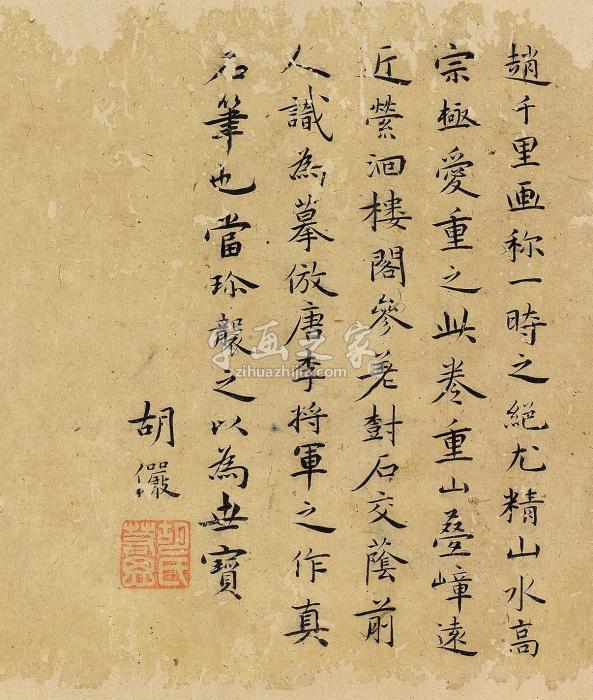 趙千里画称一時之絕尤精山水高
宗極愛重之此卷重山疊嶂遠
近縈洄樓閣參差對石交蔭前
人識為摹倣唐李将軍之作真
名筆也當珎襲之以為世寶
胡儼
字画之家
zihuazhijia.com